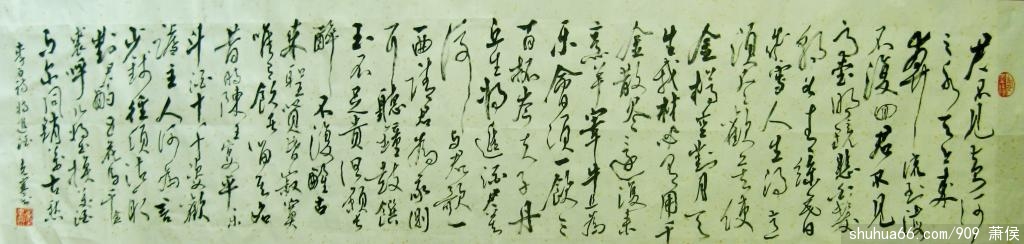 君不見黃河
之水天上來
奔流到海
不復回君不見
高堂明鏡悲白髮
朝如青絲暮
成雪人生得意
須盡歡莫使
金樽空對月天
生我材必有用千
金散盡還復來
烹羊宰牛且為
樂會須一飲三
百杯岑夫子丹
丘生將進酒君莫
停與君歌一
曲請君為我側
耳聽鐘鼓饌
玉不足貴但願長
醉不復醒古
來聖賢皆寂寞
唯有飲者留其名
昔時陳王宴平樂
斗酒十千恣歡
謔主人何為言
少錢徑須沽取
對君酌五花馬千金
裘呼兒將出換美酒
與爾同銷萬古愁
李白詩將進酒
shuhua66.com/909 萧侯